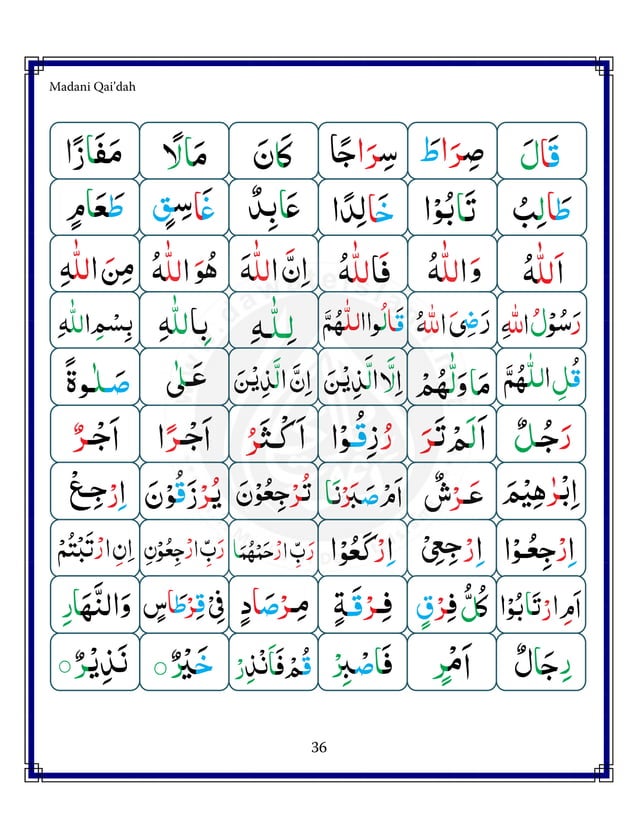 Madani Qai'dah
قَالَ صِرَاطَ سِرَاجًا كَانَ مَالًا مَفَازًا
طَالِبُ تَابُوْا خَالِدًا عَابِدٌ غَاسِقٍ طَعَامٍ
اَللّٰهُ وَاللّٰهُ فَاللّٰهُ اِنَّ اللّٰهَ هُوَ اللّٰهُ مِنَ اللّٰهِ
رَسُوْلُ اللّٰهِ رَضِىَ اللّٰهُ قَالُوا اللّٰهُمَّ لِلّٰهِ بِاللّٰهِ بِسْمِ اللّٰهِ
قُلِ اللّٰهُمَّ مَا وَلّٰهُمْ اِلَّا الَّذِيْنَ اِنَّ الَّذِيْنَ عَلٰى صَلٰوةً
رَجُلٌ اَلَمْ تَرَ رُزِقُوْا اَكْثَرُ اَجْرًا اَجْرٌ
اِبْرٰهِيْمَ عَرْشٌ اَمْ صَبَرْنَا تُرْجَعُوْنَ يُرْزَقُوْنَ اِرْجِعْ
اِرْجِعُوْا اِرْجِعِىْ اِرْكَعُوْا رَبِّ ارْحَمْهُمَا رَبِّ ارْجِعُوْنِ اِنِ ارْتَبْتُمْ
اَمِ ارْتَابُوْا كُلُّ فِرْقٍ فِرْقَةٍ مِرْصَادٍ فِىْ قِرْطَاسٍ وَالنَّهَارِ
رِجَالٌ اَمْرٍ فَاصْبِرْ قُمْ فَاَنْذِرْ خَيْرٌ ○ نَذِيْرٌ ○
36